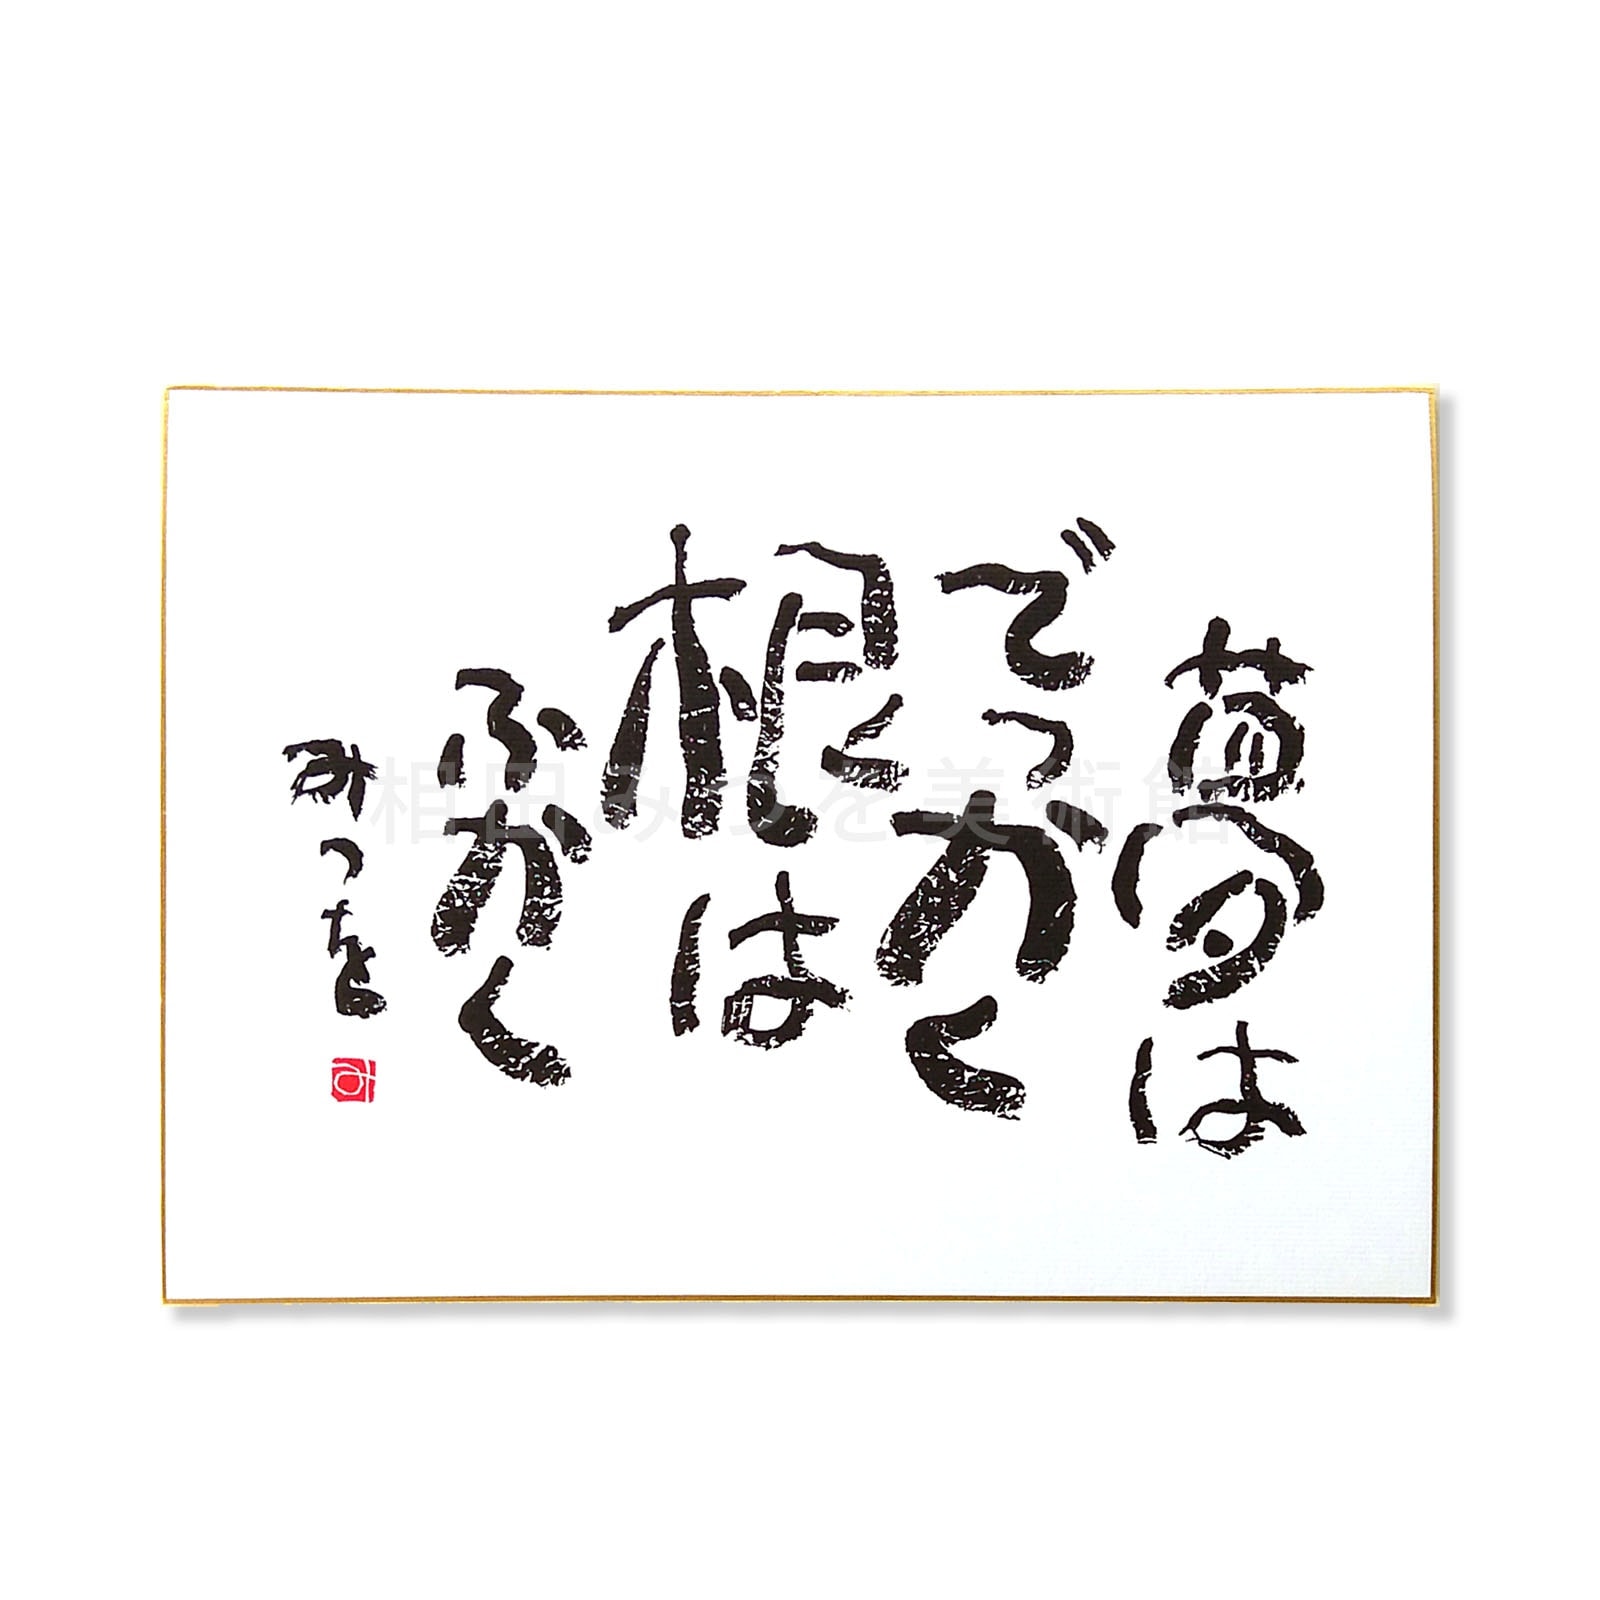 夢は
でっかく
根は
ふかく
みつを
み
相田みつを美術館